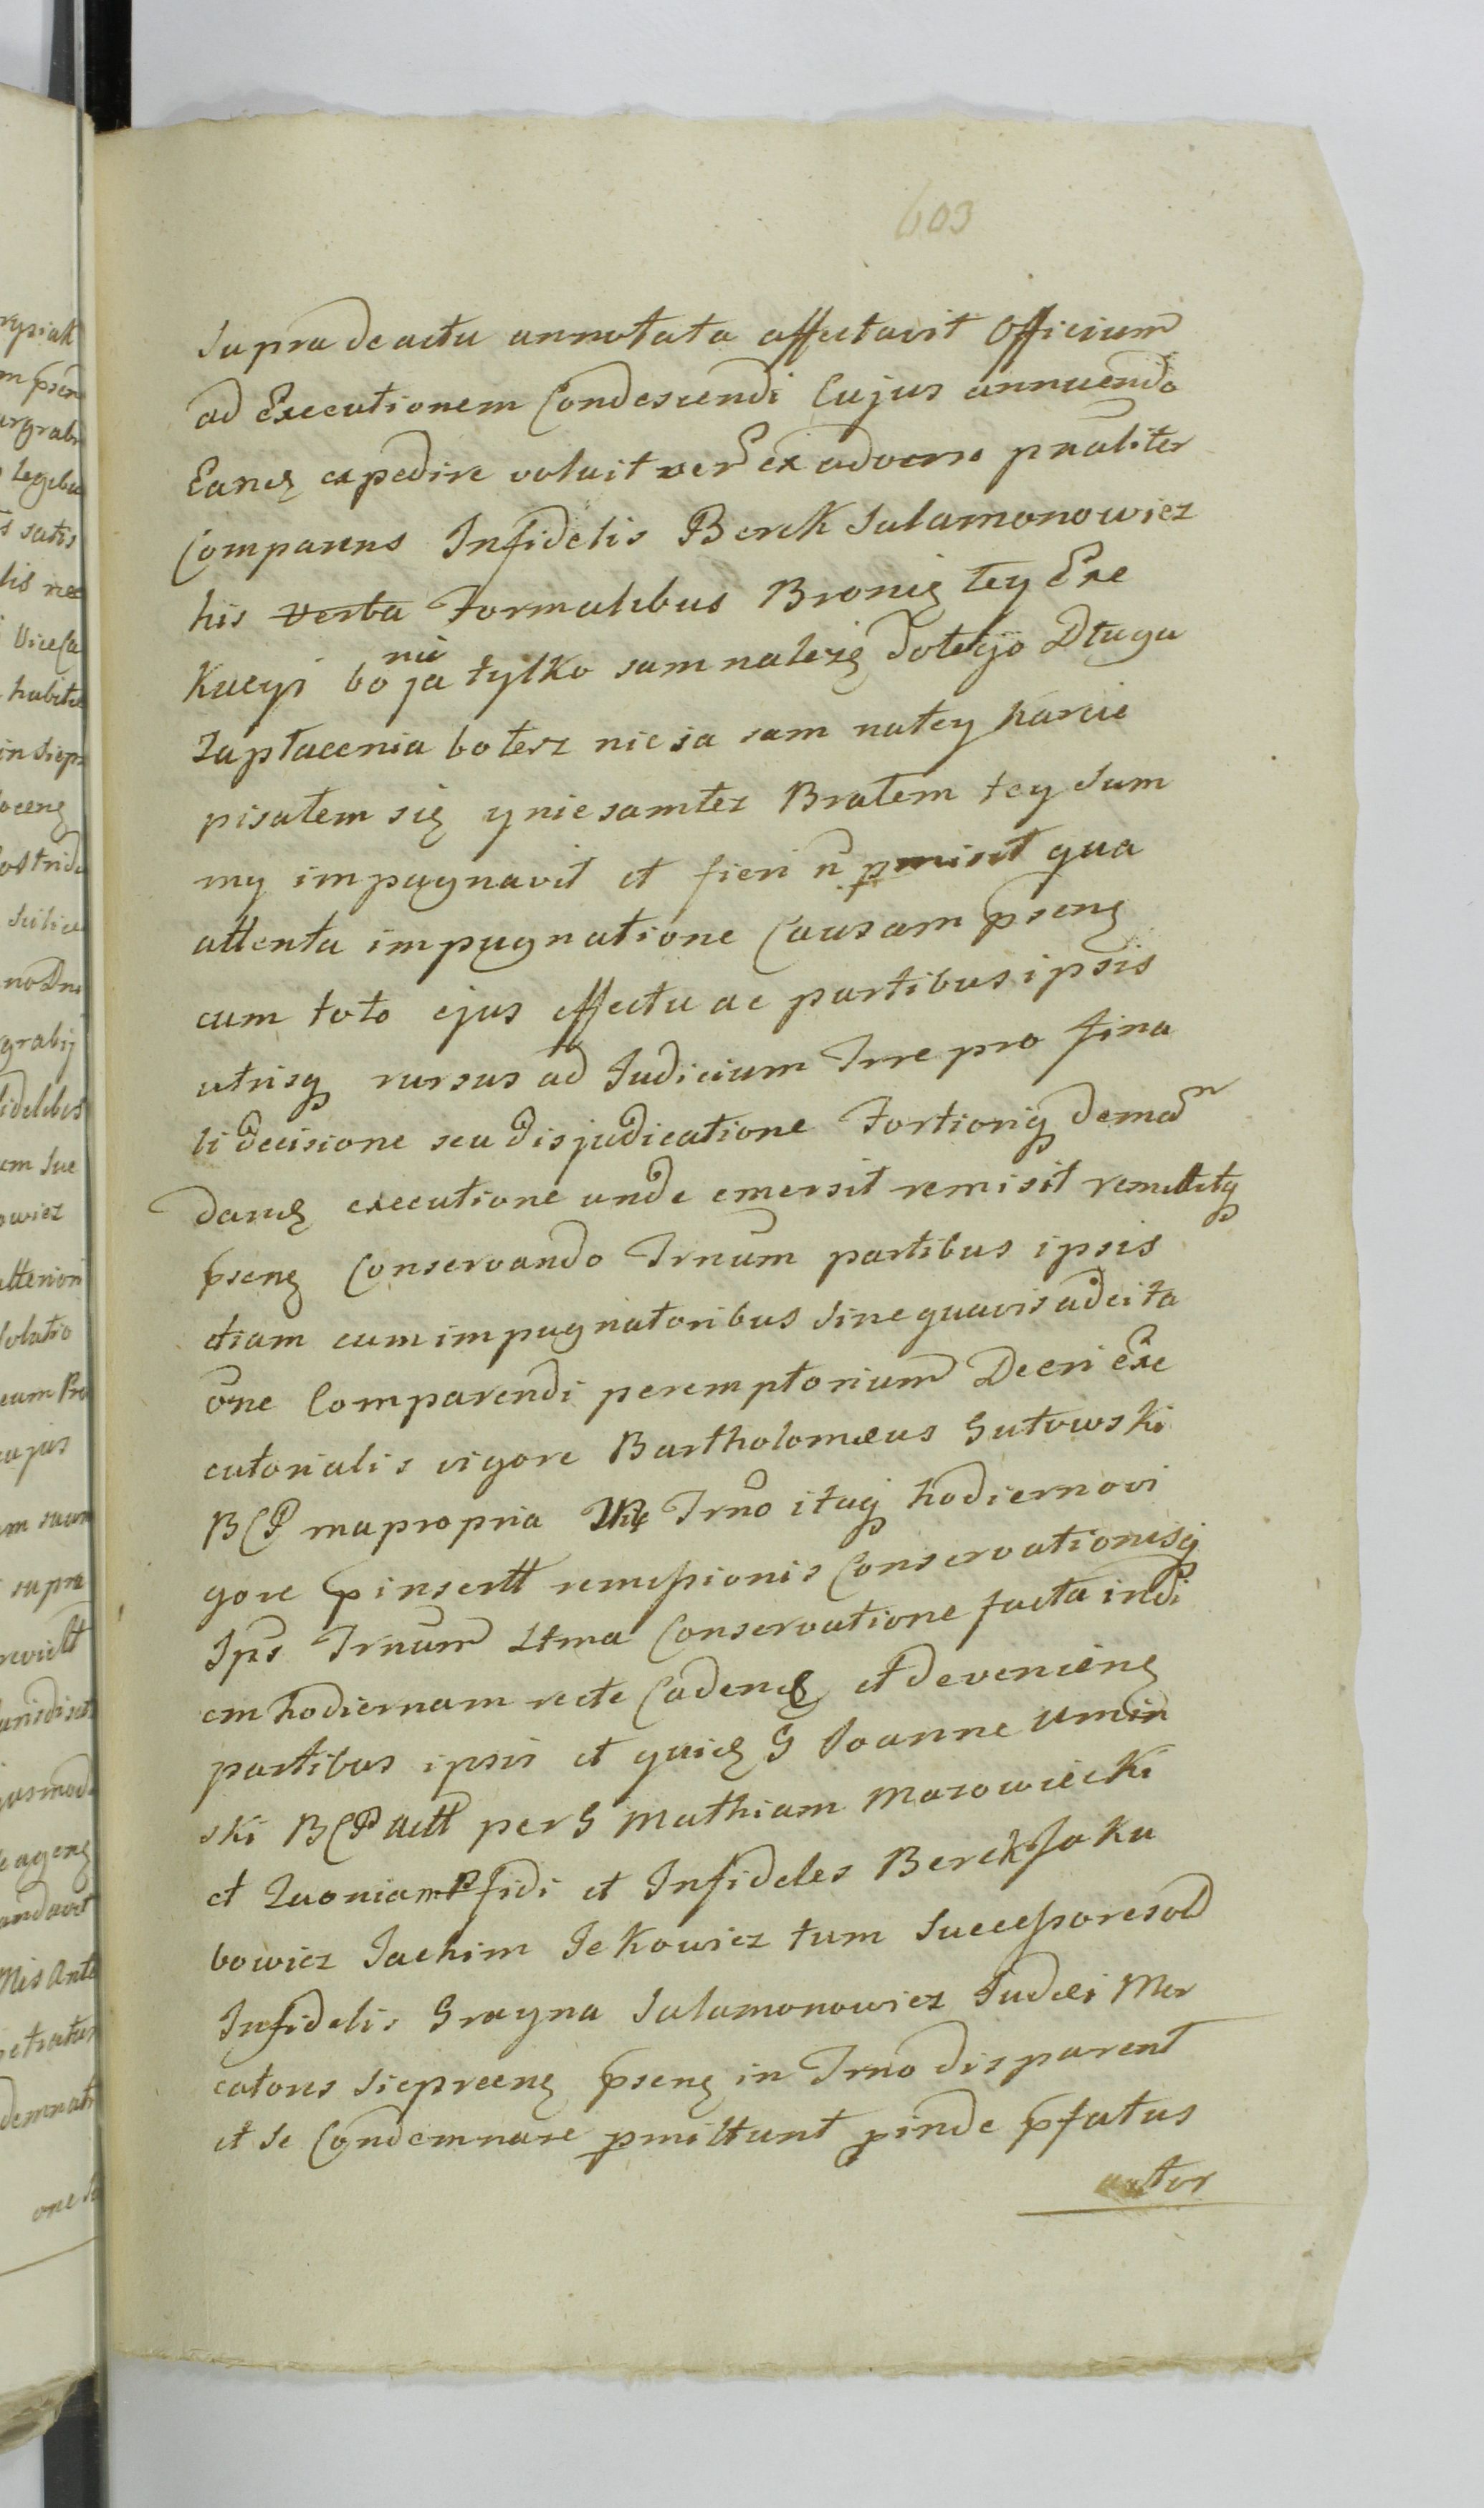 603
Supra de actu annotata affectavit Officium
ad Executionem Condescendi Cujus annuendo
Eandę expedire voluit verũ ex adverso pnaliter
Comparens Infidelis Berek Salamonowicz
his verba Formalibus Bronię tey Exe
kucyi bo nie ja tylko sam nalezę do tego Długu
Zapłacenia bo tesz nie ja sam na tey karcie
pisałem się y nie sam tez Brałem tey Sum
my impugnavit et fieri ñ pmisit qua
attenta impugnatione Causam psenę
cum toto ejus effectu ac partibus ipsis
utrisq rursus ad Judicium Trre pro fina
li decisione seu disjudicatione Fortioriq demañ
dandę executione unde emersit remisit remittitq
psenę Conservando Trnum partibus ipsis
etiam cum impugnatoribus sine quavis adcita
õne Comparendi peremptorium Decri exe
cutorialis vigore Bartholomæus Gutowski
BCP mapropria Trño itaq hodierno vi
gore pinsertt remissionis Conservationisq
Ips Trnum Ltma Conservatione facta in di
em hodiernam recte Cadendę et devenienę
partibus ipsis et quidę G Joanne Umin
ski BCP Actt per G Mathiam Mazowiecki
et Quoniam Pfidi et Infideles Berek Jaku
bowicz Jachim Jekowicz tum Successores olĩ
Infidelis Grayna Salamonowicz Judæi Mer
catores Siepreenę psenę in Trno disparent
et se Condemnare pmittunt pinde pfatus
actor
rysiak
m psen
urgrabi
legibus
satis
lis nec
Vice Ca
habita
in Siepr
ocenę
no Dni
grabij
idelibus
owicz
solutio
eum Pro
cujus
m suum
supra
usmodi
agenę
andavit
demnat